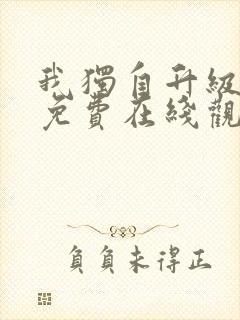 我獨自升級
免費在綫觀
負負未得正